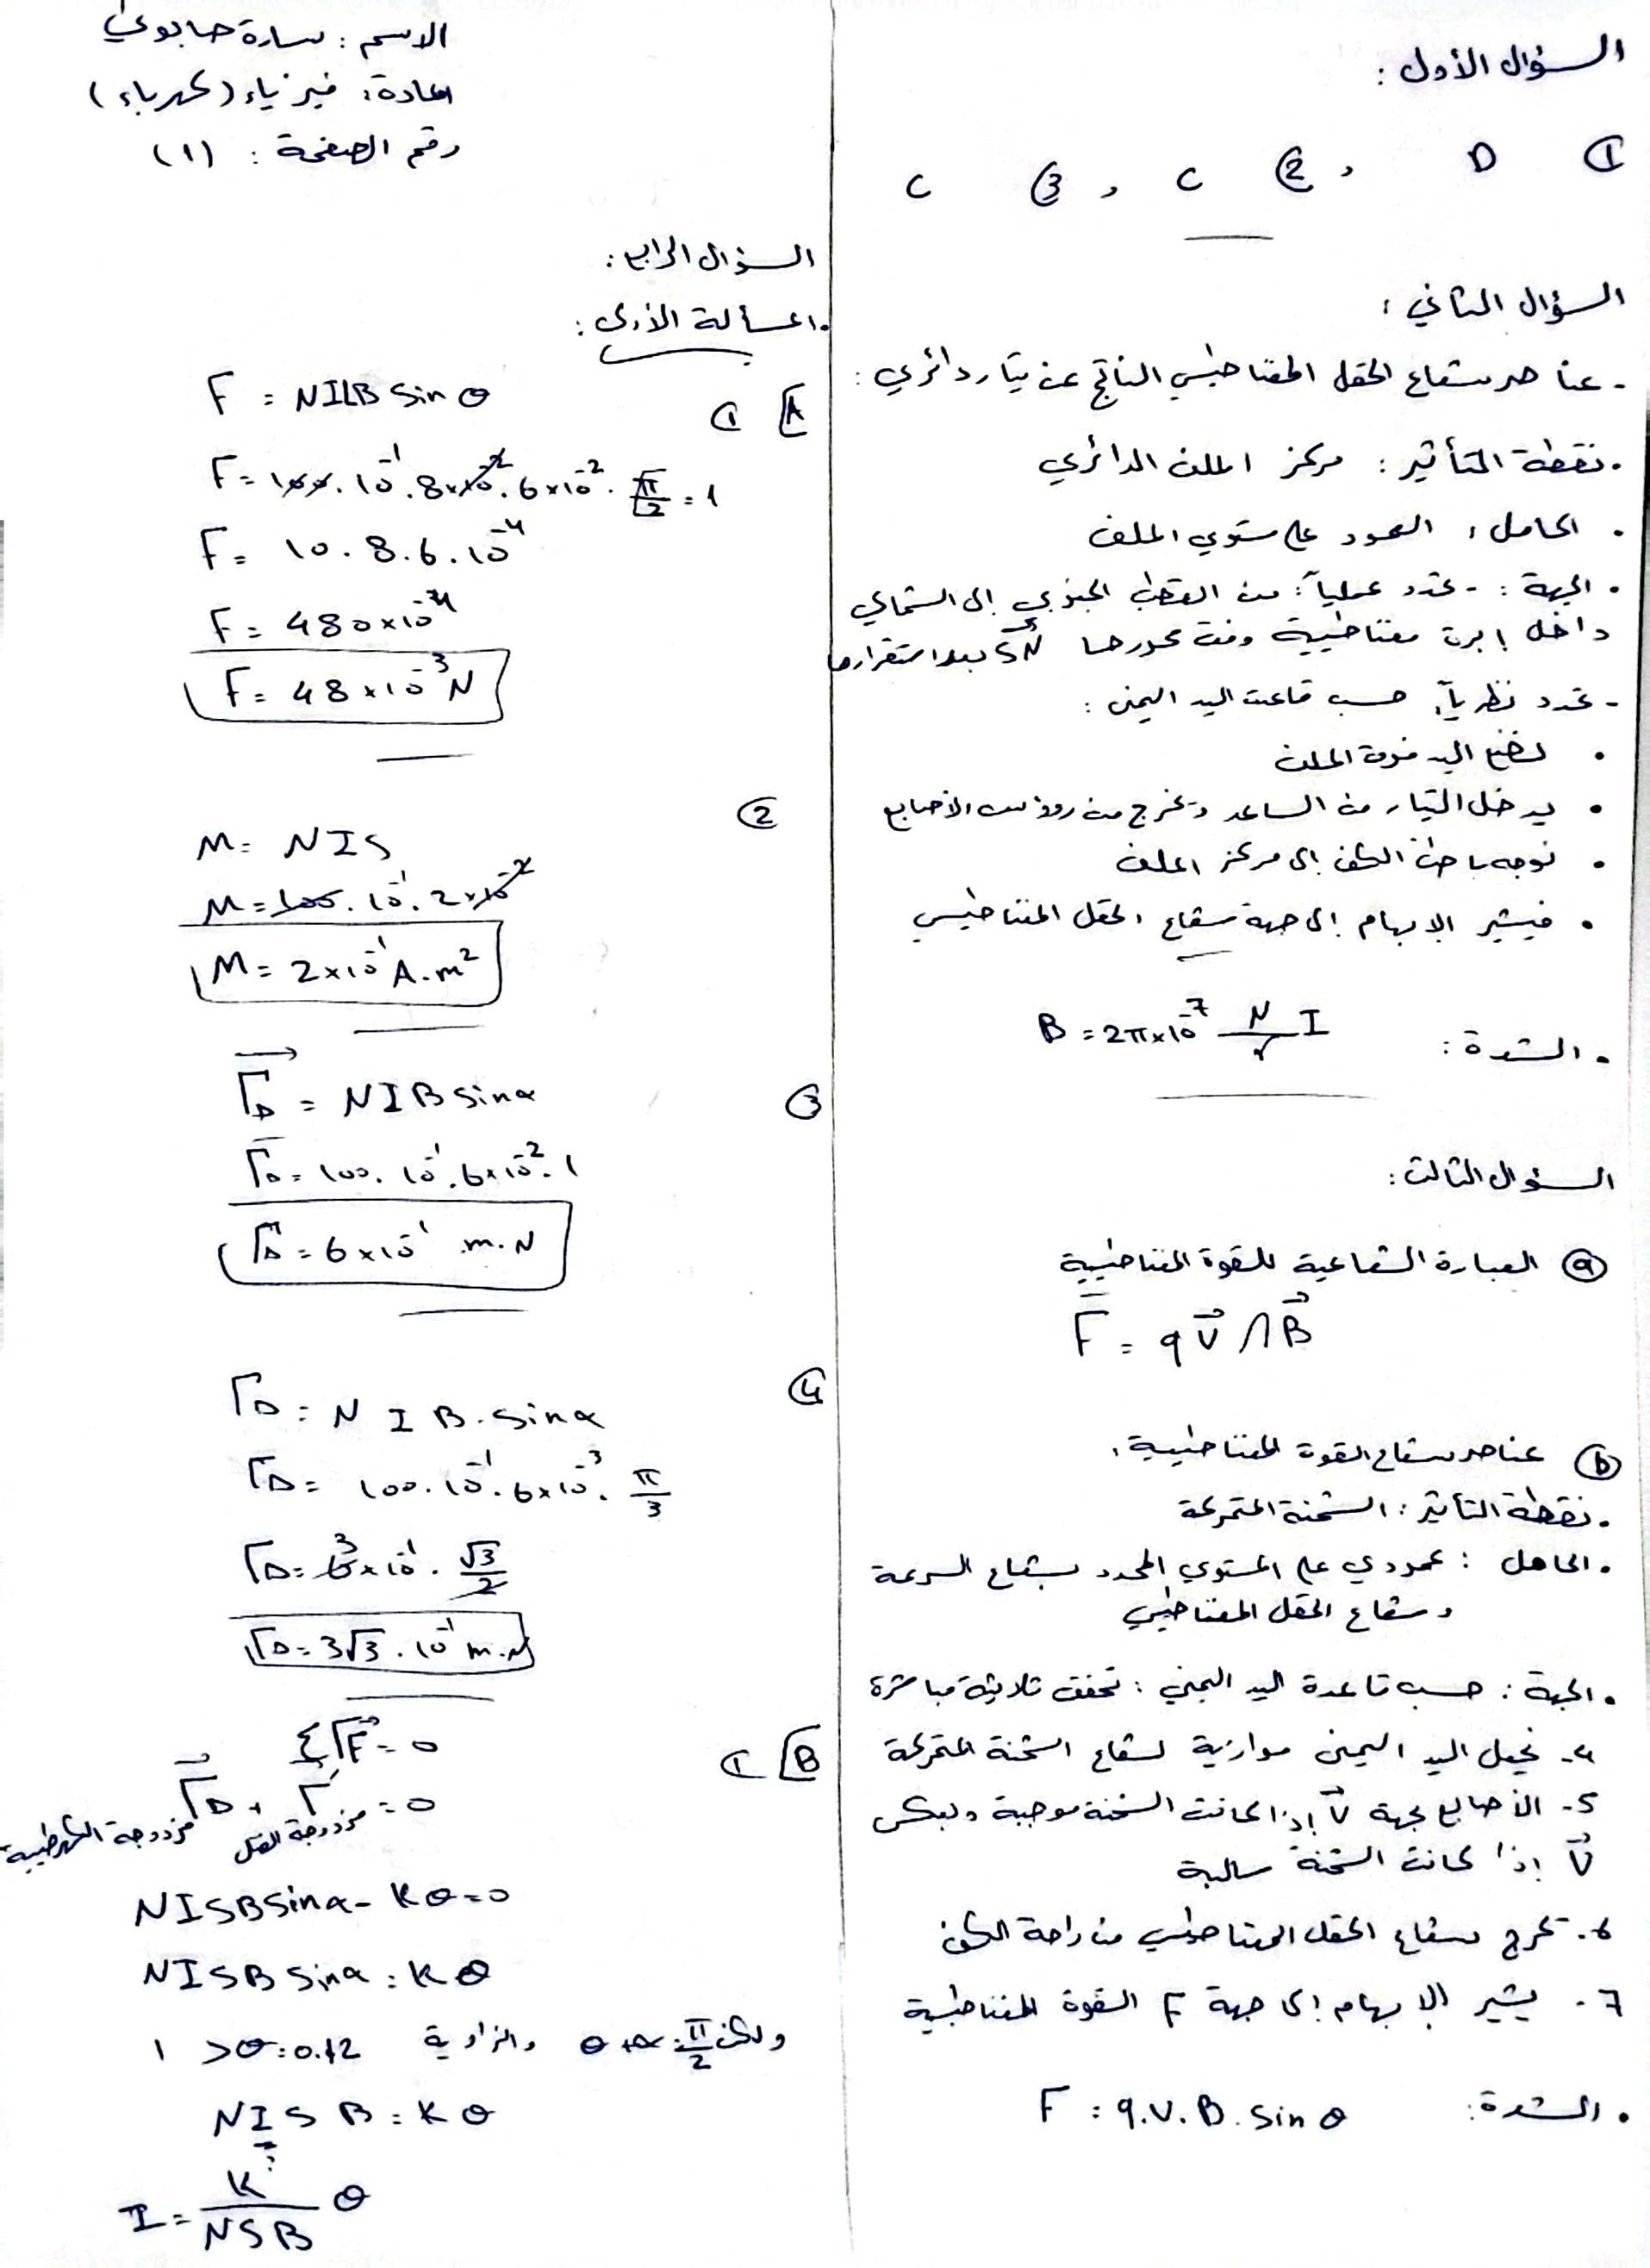 السؤال الأول :
① D , ② C , ③ C
السؤال الثاني :
- عناصر شعاع الحقل المغناطيسي الناتج عن تيار دائري :
. نقطة التأثير : مركز الملف الدائري
. الحامل : العمود على مستوي الملف
. الجهة : - تحدد عملياً : من القطب الجنوبي إلى الشمالي
داخل إبرة مغناطيسية وفق محورها SN بعد استقرارها
- تحدد نظرياً : حسب قاعدة اليد اليمنى :
. نضع اليد فوق الملف
. يدخل التيار من الساعد ويخرج من رؤوس الأصابع
. نوجه باطن الكف إلى مركز الملف
. فيشير الإبهام إلى جهة شعاع الحقل المغناطيسي
. الشدة : B = 2π×10⁻⁷ N/r I
السؤال الثالث :
ⓐ العبارة الشعاعية للقوة المغناطيسية
F = qV⃗ ∧ B⃗
ⓑ عناصر شعاع القوة المغناطيسية :
. نقطة التأثير : الشحنة المتحركة
. الحامل : عمودي على المستوي المحدد بشعاع السرعة
وشعاع الحقل المغناطيسي
. الجهة : حسب قاعدة اليد اليمنى : تحقق ثلاثية مباشرة
4- نجعل اليد اليمنى موازية لشعاع الشحنة المتحركة
5- الأصابع بجهة V⃗ إذا كانت الشحنة موجبة وبعكس
V⃗ إذا كانت الشحنة سالبة
6- تخرج شعاع الحقل المغناطيسي من راحة الكف
7- يشير الإبهام إلى جهة F القوة المغناطيسية
. الشدة : F = q.V.B.sin θ
الاسم : سارة حابوي
المادة : فيزياء (كهرباء)
رقم الصفحة : (١)
السؤال الرابع :
المسألة الأولى :
A ① F = NILB sin θ
F = 100. 10⁻¹ .8×10⁻². 6×10⁻². π/2 = 1
F = 10. 8. 6. 10⁻⁴
F = 480×10⁻⁴
F = 48×10⁻³ N
② M = NIS
M = 100. 10⁻¹. 2×10⁻²
M = 2×10⁻¹ A.m²
③ Γ⃗Δ = NIB sinα
ΓΔ = 100. 10⁻¹ .6×10⁻². 1
ΓΔ = 6×10⁻¹ m.N
④ ΓΔ = N I B. sinα
ΓΔ = 100. 10⁻¹. 6×10⁻³. π/3
ΓΔ = 6×10⁻¹ . √3/2
ΓΔ = 3√3 . 10⁻¹ m.N
B ① ΣΓ⃗F = 0
Γ⃗Δ + Γ⃗' = 0
مزدوجة الكهرطيسية مزدوجة الفتل
NISB sinα - Kθ = 0
NISB sinα = Kθ
ولكن θ+α = π/2 والزاوية 1 > θ = 0.12
NISB = Kθ
I = K/NSB θ